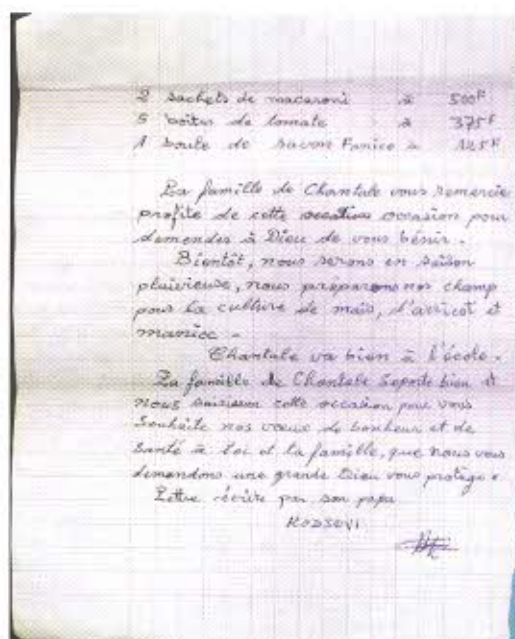 2 sachets de macaroni à 500F
5 boîtes de tomate à 375F
1 boule de savon Fanico à 125F
La famille de Chantale vous remercie
profite de cette occasion pour
demander à Dieu de vous bénir.
Bientôt, nous serons en saison
pluivieuse, nous préparons nos champ
pour la culture de maïs, d'arricot et
manioc.
Chantale va bien à l'école.
La famille de Chantale seporte bien et
nous saisisson cette occasion pour vous
souhaite nos vœux de bonheur et de
santé à toi et la famille, que nous vous
demandons une grande Dieu vous protège.
Lettre écrite par son papa
KODSOVI